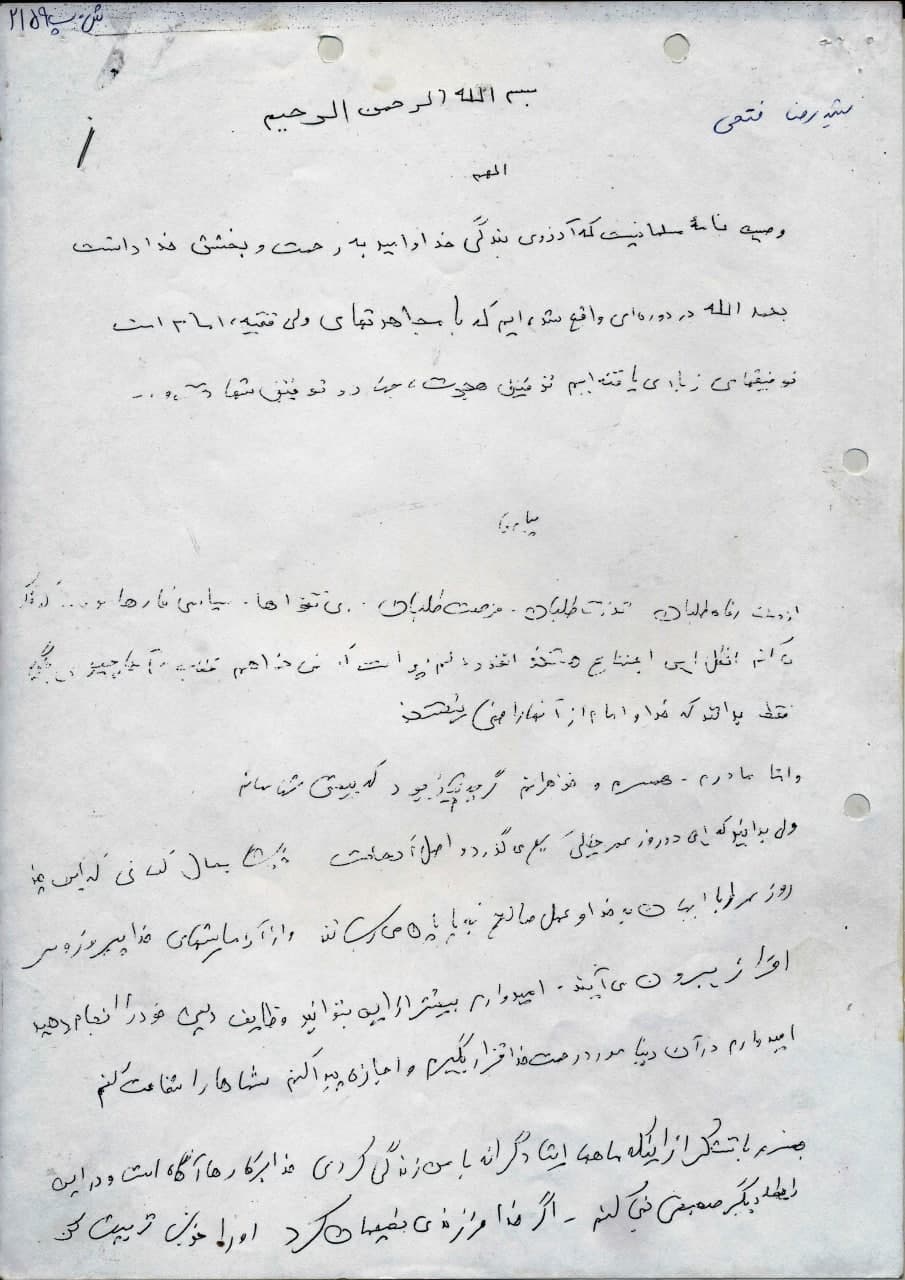 ش-پ ۲۱۵۹
بسم الله الرحمن الرحیم
شهید رضا فتحی
اللهم
وصیت نامهٔ مسلمانیست که آرزوی بندگی خدا و امید به رحمت و بخشش خدا داشت
بحمد الله در دوره‌ای واقع شده‌ایم که با مجاهدتهای ولی فقیه، امام امت
توفیقهای زیادی یافته‌ایم توفیق هجرت، جهاد و توفیق شهادت و...
از دست رفاه طلبان قدرت طلبان - فرصت طلبان - بی تفاوتها - سیاسی کارها و ....
فقط بدانند که خدا و امام از آنها راضی نیستند
و اما مادرم - همسرم و خواهرانم گرچه که بینش شما
ولی بدانید که این دو روز عمر خیلی سریع می‌گذرد و اصل آخرت است بحال کسانی که این چند
روز عمر را با ایمان به خدا و عمل صالح به پایان می‌رسانند و از آزمایشهای خدا پیروز و سر
افراز بیرون می‌آیند - امیدوارم بیشتر از این بتوانید وظایف دینی خود را انجام دهید
امیدوارم در آن دنیا مورد رحمت خدا قرار بگیرم و اجازه پیدا کنم شماها را شفاعت کنم
همسرم با تشکر از اینکه ماهها ایثارگرانه با من زندگی کردی خدا بر کارها آگاه است و در این
رابطه دیگر صحبتی نمی‌کنم - اگر خدا فرزندی نصیبمان کرد او را خوب تربیت کن